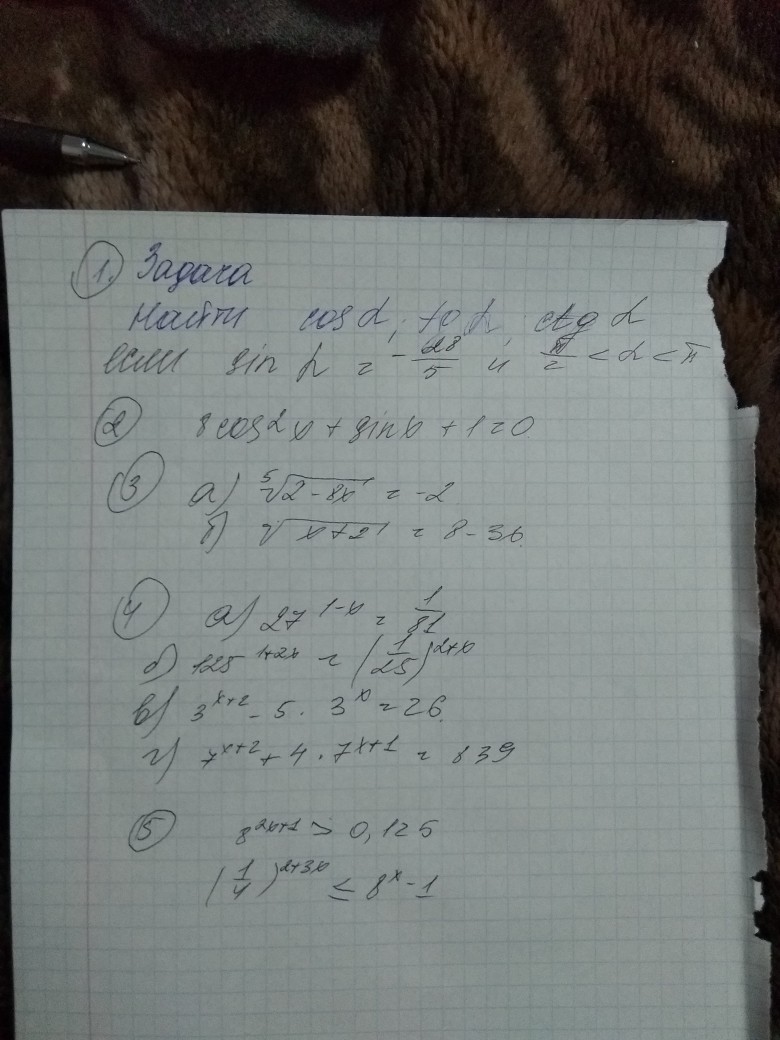 1. Задача
Найти cos α, tg α, ctg α
если sin α = -28/5 и π/2 < α < π
2 8cos2x + sinx + 1 = 0
3 а) ⁵√(2-8x) = -2
б) √(x+2) = 8-3x
4 а) 27^(1-x) = 1/81
б) 125^(1+2x) = (1/25)^(2+x)
в) 3^(x+2) - 5 · 3^x = 26.
г) 7^(x+2) + 4 · 7^(x+1) = 839
5 8^(2x+1) > 0,125
(1/4)^(2+3x) ≤ 8^x-1